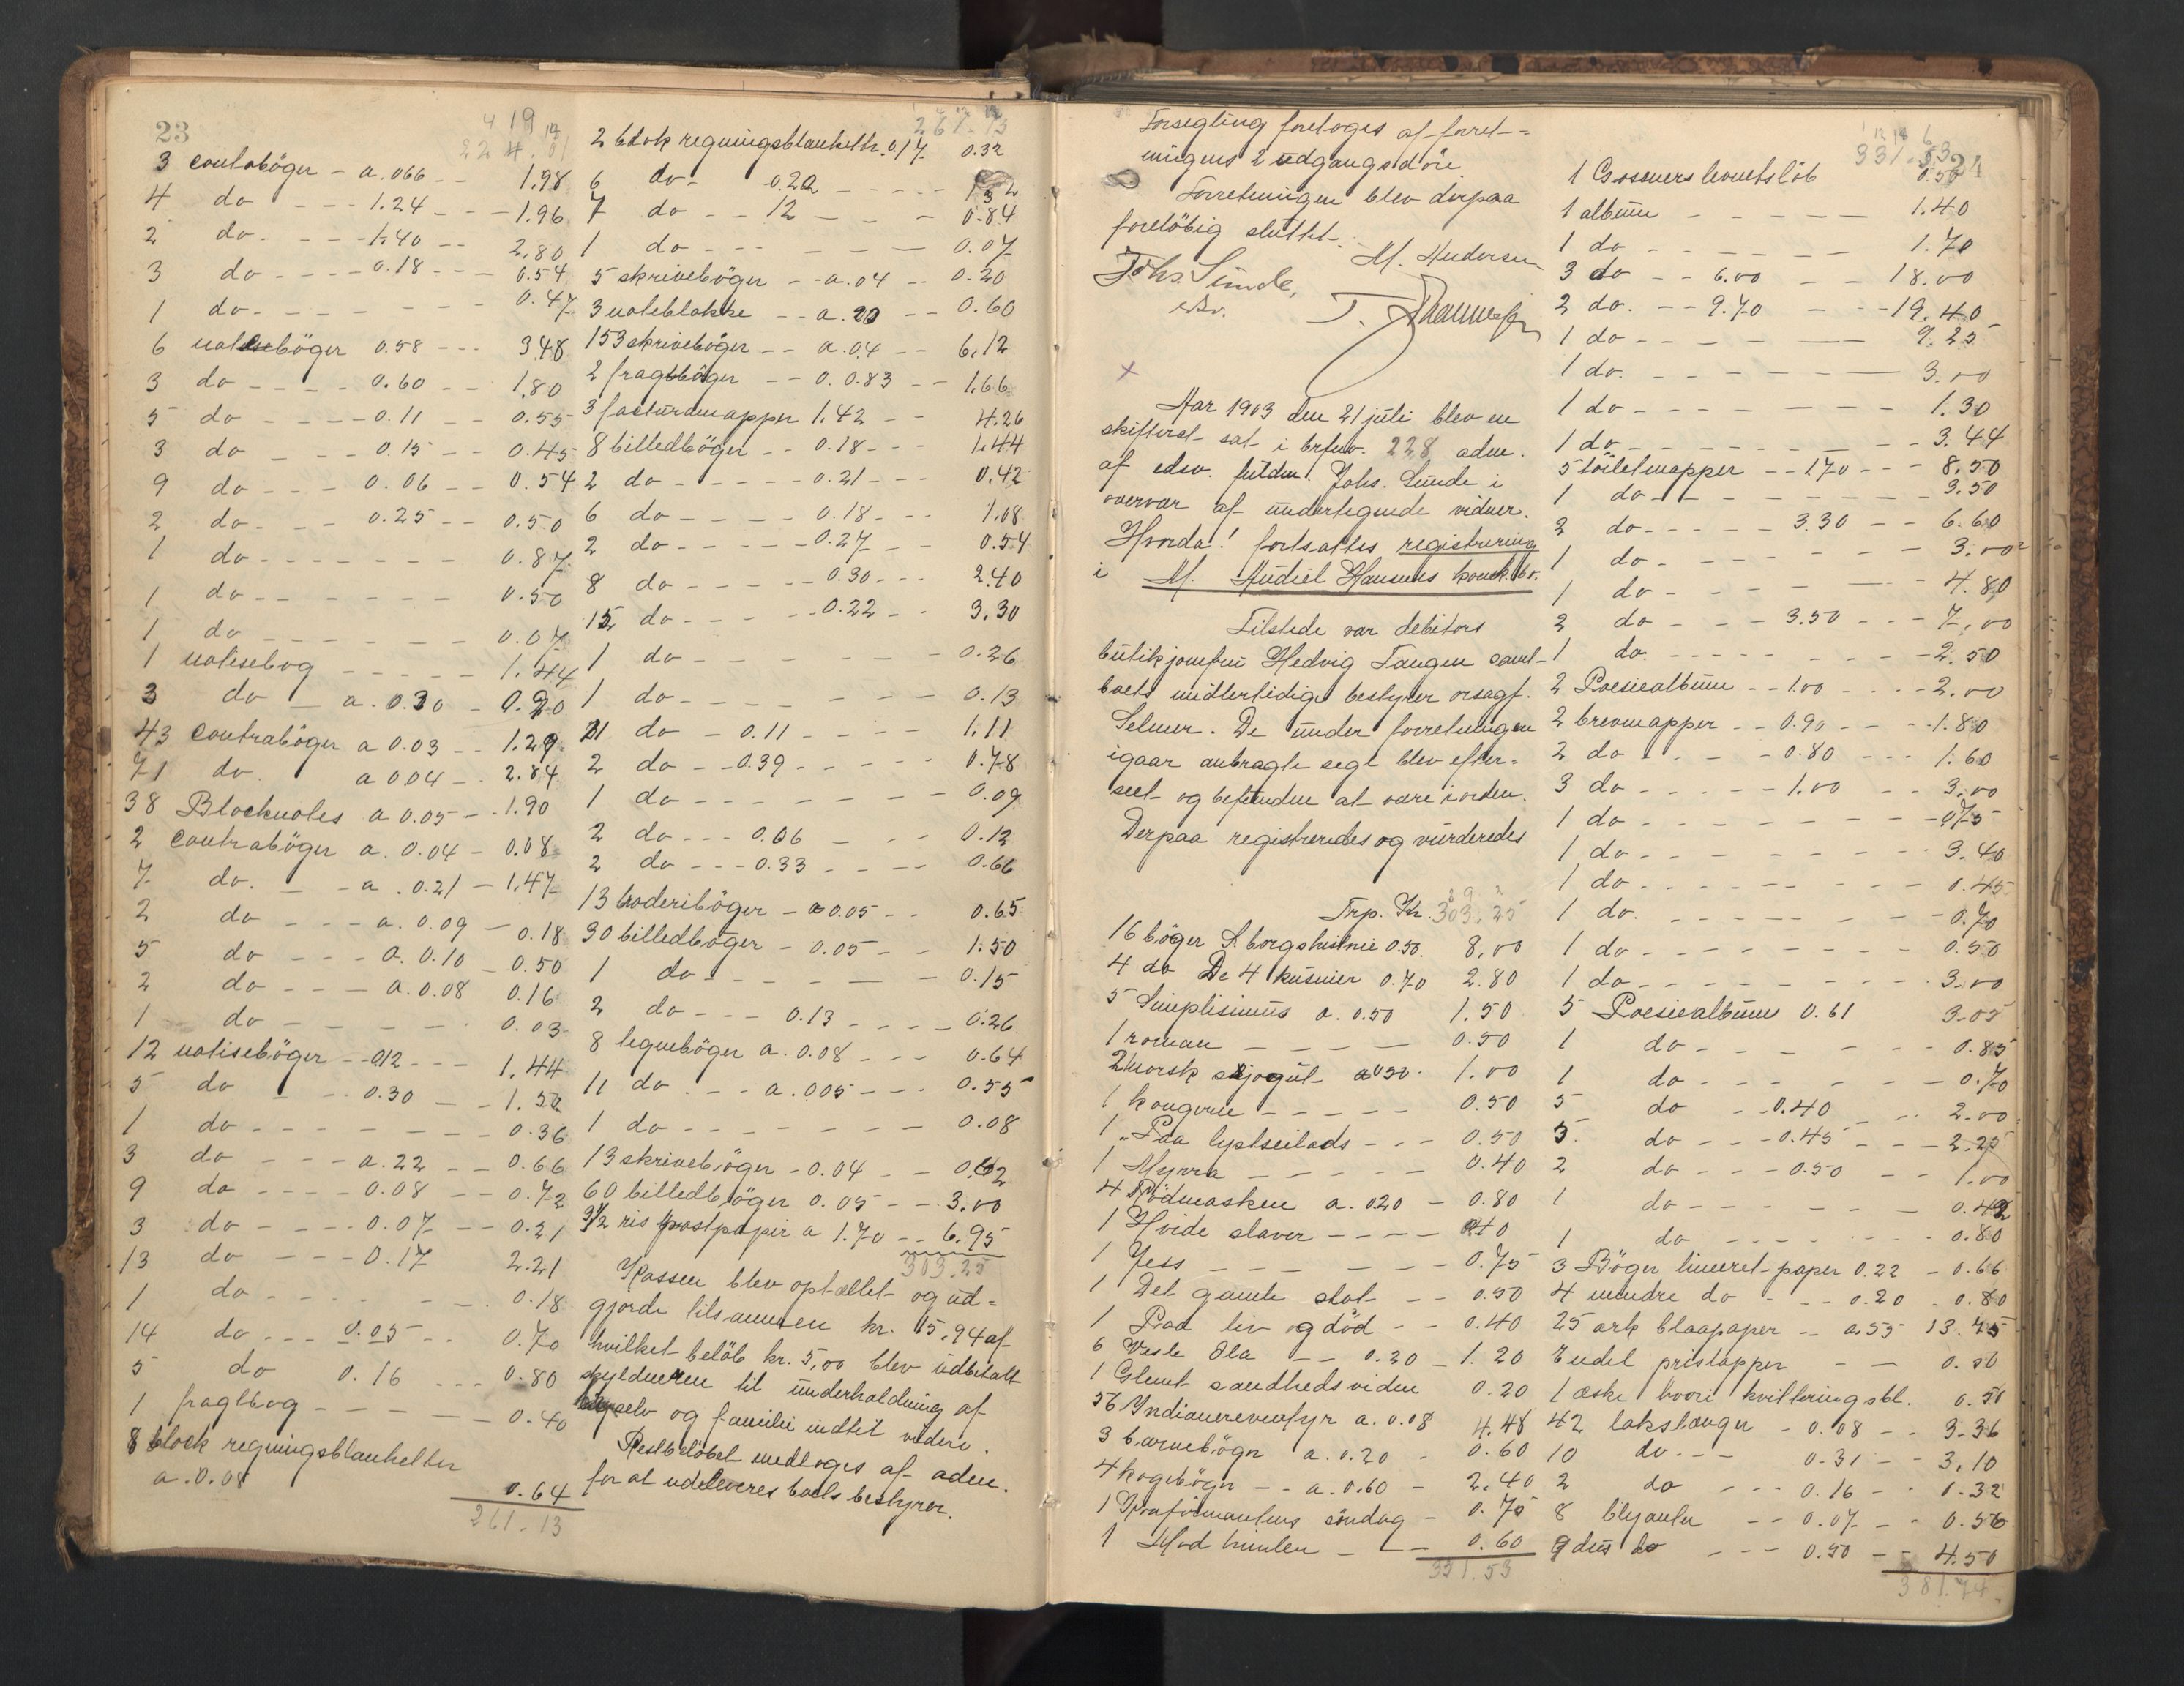 23
419
224.01
3 contobøger - a. 066 - - 1.98
4 do - - - 1.24 - - - 1.96
2 do. - - - 1.40 - - 2.80
3 do - - - - 0.18 - - - 0.54
1 do - - - - - - - 0.47
6 notisebøger 0.58 - - - 3.48
3 do - - - - 0.60 - - - 1.80
5 do - - - - 0.11 - - 0.55
3 do - - - 0.15 - - 0.45
9 do - - - 0.06 - - 0.54
2 do - - - 0.25 - - 0.50
1 do - - - - - - - 0.87
1 do - - - - - - 0.50
1 do - - - - - - 0.07
1 notisebog - - - - - 1.44
3 do - a. 0.30 - 0.90
43 Contrabøger a 0.03 - - 1.29
71 do. a 0.04 - - 2.84
38 Blocknotes a 0.05 - - 1.90
2 Contrabøger a. 0.04 - 0.08
7 do. - - a. 0.21 - 1.47
2 do - - - a. 0.09 - 0.18
5 do - - - a. 0.10 - 0.50
2 do - - - a. 0.08 0.16
1 do - - - - - - 0.03
12 notisebøger - - 012 - - - 1.44
5 do - - - 0.30 - - 1.50
1 do - - - - - - - 0.36
3 do - - - a. 22 - - 0.66
9 do - - - - 0.08 - - 0.72
3 do - - - - 0.07 - - 0.21
13 do - - - 0.17 2.21
1 do - - - - - - - 0.18
14 do - - - 0.05 - - 0.70
5 do 0.16 - - - 0.80
1 fragtbog - - - - - - 0.40
8 block regningsblanketter
a. 0.08 0.64
261.13
261.13
2 blok regningsblanketter. 0.17 0.32
6 do - 0.22 - - - - 1.32
7 do - - 12 - - - 0.84
1 do - - - - - - 0.07
5 skrivebøger - - a. 04 - - 0.20
3 noteblokke - - a. 20 - - 0.60
153 skrivebøger - - a. 04 - - 6.12
2 fragtbøger - - 0.083 - - 1.66
3 facturamapper 1.42 - - 4.26
8 billedbøger - - 0.18 - - - 1.44
2 do - - - - - 0.21 - - - 0.42
6 do - - - - 0.18 - - - 1.08
2 do - - - - - 0.27 - - 0.54
8 do - - - - - 0.30 - - - 2.40
15 do - - - - 0.22 - - 3.30
1 do - - - - - - - 0.26
1 do - - - - - - - 0.13
11 do - 0.11 - - - - 1.11
2 do - - 0.39 - - - - - 0.78
1 do - - - - - - - 0.09
2 do - - - 0.06 - - - 0.12
2 do - - - 0.33 - - - 0.66
13 broderibøger - a 0.05 - - 0.65
30 billedbøger - 0.05 - - 1.50
1 do - - - - - - 0.15
2 do - - - 0.13 - - - - 0.26
8 tegnebøger a. 0.08 - - - 0.64
11 do - - - a. 005 - - - 0.55
1 do - - - - - - - 0.08
13 skrivebøger - 0.04 - - 0.62
60 billedbøger 0.05 - - - 3.00
3 1/2 ris postpapir a 1.70 - - 6.95
303.25
Kassen blev optællet og ud-
gjorde tilsammen kr. 15,94 af
hvilket beløb kr. 5,00 blev udbetalt
skyldneren til underholdning af
sigselv og familie indtil videre.
Restbeløbet medtoges af adm.
for at udeleveres boets bestyrer.
Forsegling foretoges af forret-
ningens 2 udgangsdøre.
Forretningen blev derpaa
foreløbig sluttet.
M. Andersen
Johs. Sunde,
edsv.
Aar 1903 den 21 juli blev en
skifteret sat i brfmo. 228 adm.
af edsv. fuldm. Johs. Sunde i
overvær af undertegnede vidner.
Hvorda! fortsattes registrering
i M. Audiel Hansens konk.bo.
Tilstede var debitors
butikjomfru Hedvig Tangen samt
boets midlertidige bestyrer orsagf.
Selmer. De under forretningen
igaar anbragte segl blev efter-
seet og befunden at være i orden.
Derpaa registreredes og vurderedes
Trp. Kr. 303.25
16 bøger S.borgshistorie 0.50. 8,00
4 do De 4 kusiner 0.70 2.80
5 Simplisimus a. 0.50 1.50
1 roman - - - - - 0.50
2 norsk skjogut a 050. 1.00
1 kongerne - - - - - 0.50
1 "Paa lyptseilads - - - 0.50
1 Myrra - - - - - 0.40
4 Rødmasken a. 020 - 0.80
1 Hvide slaver - - - - 0.40
1 Jess - - - - - - 0.75
1 Det gamle slot - - 0.50
1 Paa liv og død - - 0.40
6 Vesle Ola - - 0.20 - 1.20
1 Glemt sandhedsviden 0.20
56 Indianereventyr a. 0.08 4.48
3 barnebøger a. 0.20 - 0.60
4 kogebøger - - a. 0.60 - 2.40
1 Konfirmantens søndag - 0.75
1 Mod himlen - - - 0.60
331.53
331.53
24
1 Grosserer 0.50
1 album - - - - - - 1.40
1 do - - - - - - - 1.70
3 do - - 6.00 - - 18.00
2 do. - - 9.70 - - - 19.40
1 do - - - - - - - 9.25
1 do. - - - - - - - 3.00
1 do - - - - - - - 1.30
1 do - - - - - - - 3.44
5 toiletmapper - - 170 - - - 8.50
1 do - - - - - - - 3.50
2 do - - - - - 3.30 - - 6.60
1 do - - - - - - 3.00
1 do - - - - - - 4.80
2 do - - - 3.50 - - - 7.00
1 do. - - - - - - - 2.50
2 Poesiealbum - - 1.00 - - - - 2.00
2 brevmapper - - 0.90 - - - 1.80
2 do - - - - 0.80 - - - 1.60
3 do - - - - - 1.00 - - 3.00
1 do - - - - - - - 0.75
1 do - - - - - - - 3.40
1 do - - - - - - - 0.45
1 do. - - - - - - - 0.70
1 do - - - - - - - 0.50
1 do - - - - - - - 3.00
5 Poesiealbums 0.61 3.05
1 do - - - - - - 0.85
1 do - - - - - - 0.70
5 do - - 0.40 - - 2.00
5 do - - - 0.45 - - - 2.25
2 do - - - 0.50 - - 1.00
1 do - - - - - - 0.42
1 do - - - - - - 0.80
3 Bøger linieret papir 0.22 - 0.66
4 mindre do - - - 0.20 - 0.80
25 ark blaapaper - - a. 55 13.75
Endel prislapper - - 0.50
1 æske hvori kvitteringsbl. 0.50
42 lakstænger - 0.08 - - 3.36
10 do. - - 0.31 - - 3.10
2 do - - - 0.16 - - 0.32
8 blyanter - - 0.07 - - 0.56
9 dus do - - - 0.50 - - 4.50
381.74